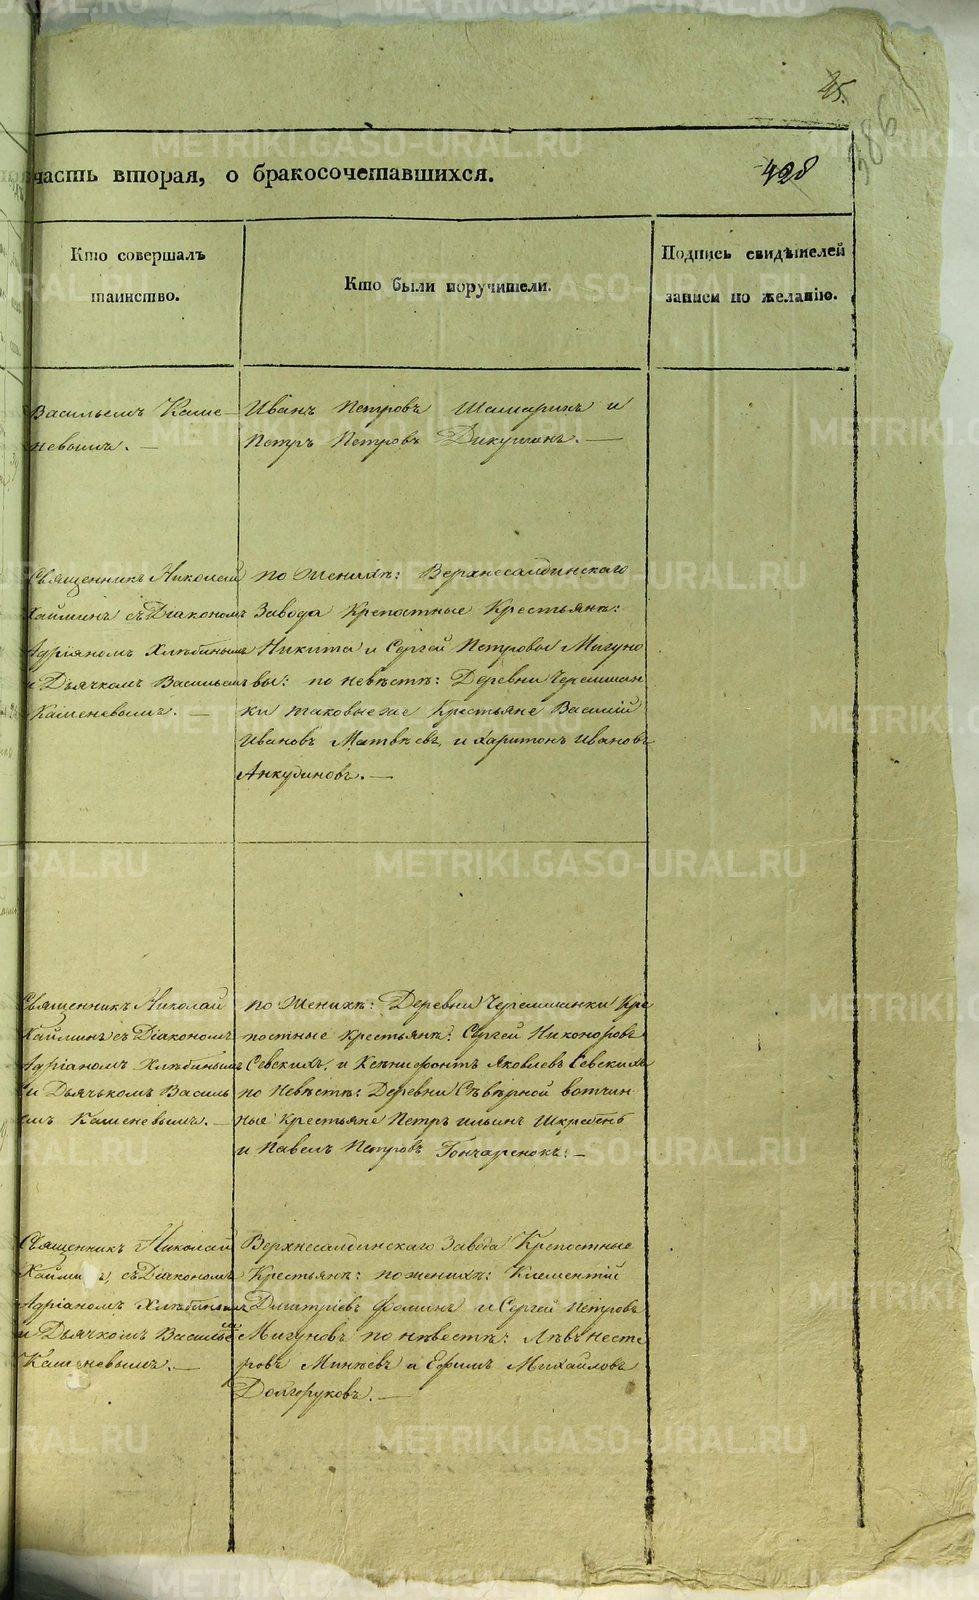 25.
386
часть вторая, о бракосочетавшихся.
428
Кто совершалъ
таинство.
Кто были поручители.
Подпись свидѣтелей
записи по желанію.
Васильемъ Каме-
невымъ. —
Иванъ Петровъ Шамаринъ и
Петръ Петровъ Дикушинъ. —
Священникъ Николай
Хайминъ съ Діакономъ
Адріяномъ Хлѣбинымъ
и Дьячкомъ Васильемъ
Каменевымъ. —
по Женихѣ: Верхнесалдинскаго
Завода Крепостные Крестьянѣ:
Никита и Сергей Петровы Мигуно
вы: по невѣстѣ: Деревни Черемшан
ки таковые же Крестьяне Василій
Ивановъ Матвѣевъ, и Харитонъ Ивановъ
Анкудиновъ. —
Священникъ Николай
Хайминъ съ Діакономъ
Адріаномъ Хлѣбинымъ
и Дьячькомъ Василь
емъ Каменевымъ. —
по Женихѣ: Деревни Черемшанки Кре
постные Крестьянѣ: Сергей Никоноровъ
Севскихъ, и Ксенифонтъ Яковлевъ Севскихъ
по Невѣстѣ: Деревни Сѣвѣрной вотчин
ные Крестьяне Петръ Ильинъ Шкребень
и Павелъ Петровъ Гончаренокъ: —
Священникъ Николай
Хайминъ, съ Діакономъ
Адріаномъ Хлѣбинымъ
и Дьячкомъ Васильемъ
Каменевымъ. —
Верхнесалдинскаго Завода Крепостные
Крестьянѣ: по женихѣ: Климентій
Дмитріевъ Фоминъ и Сергей Петровъ
Мигуновъ по нѣвестѣ: Лѣвъ Несте
ровъ Минѣевъ и Ефимъ Михайловъ
Долгоруковъ. —
METRIKI.GASO-URAL.RU